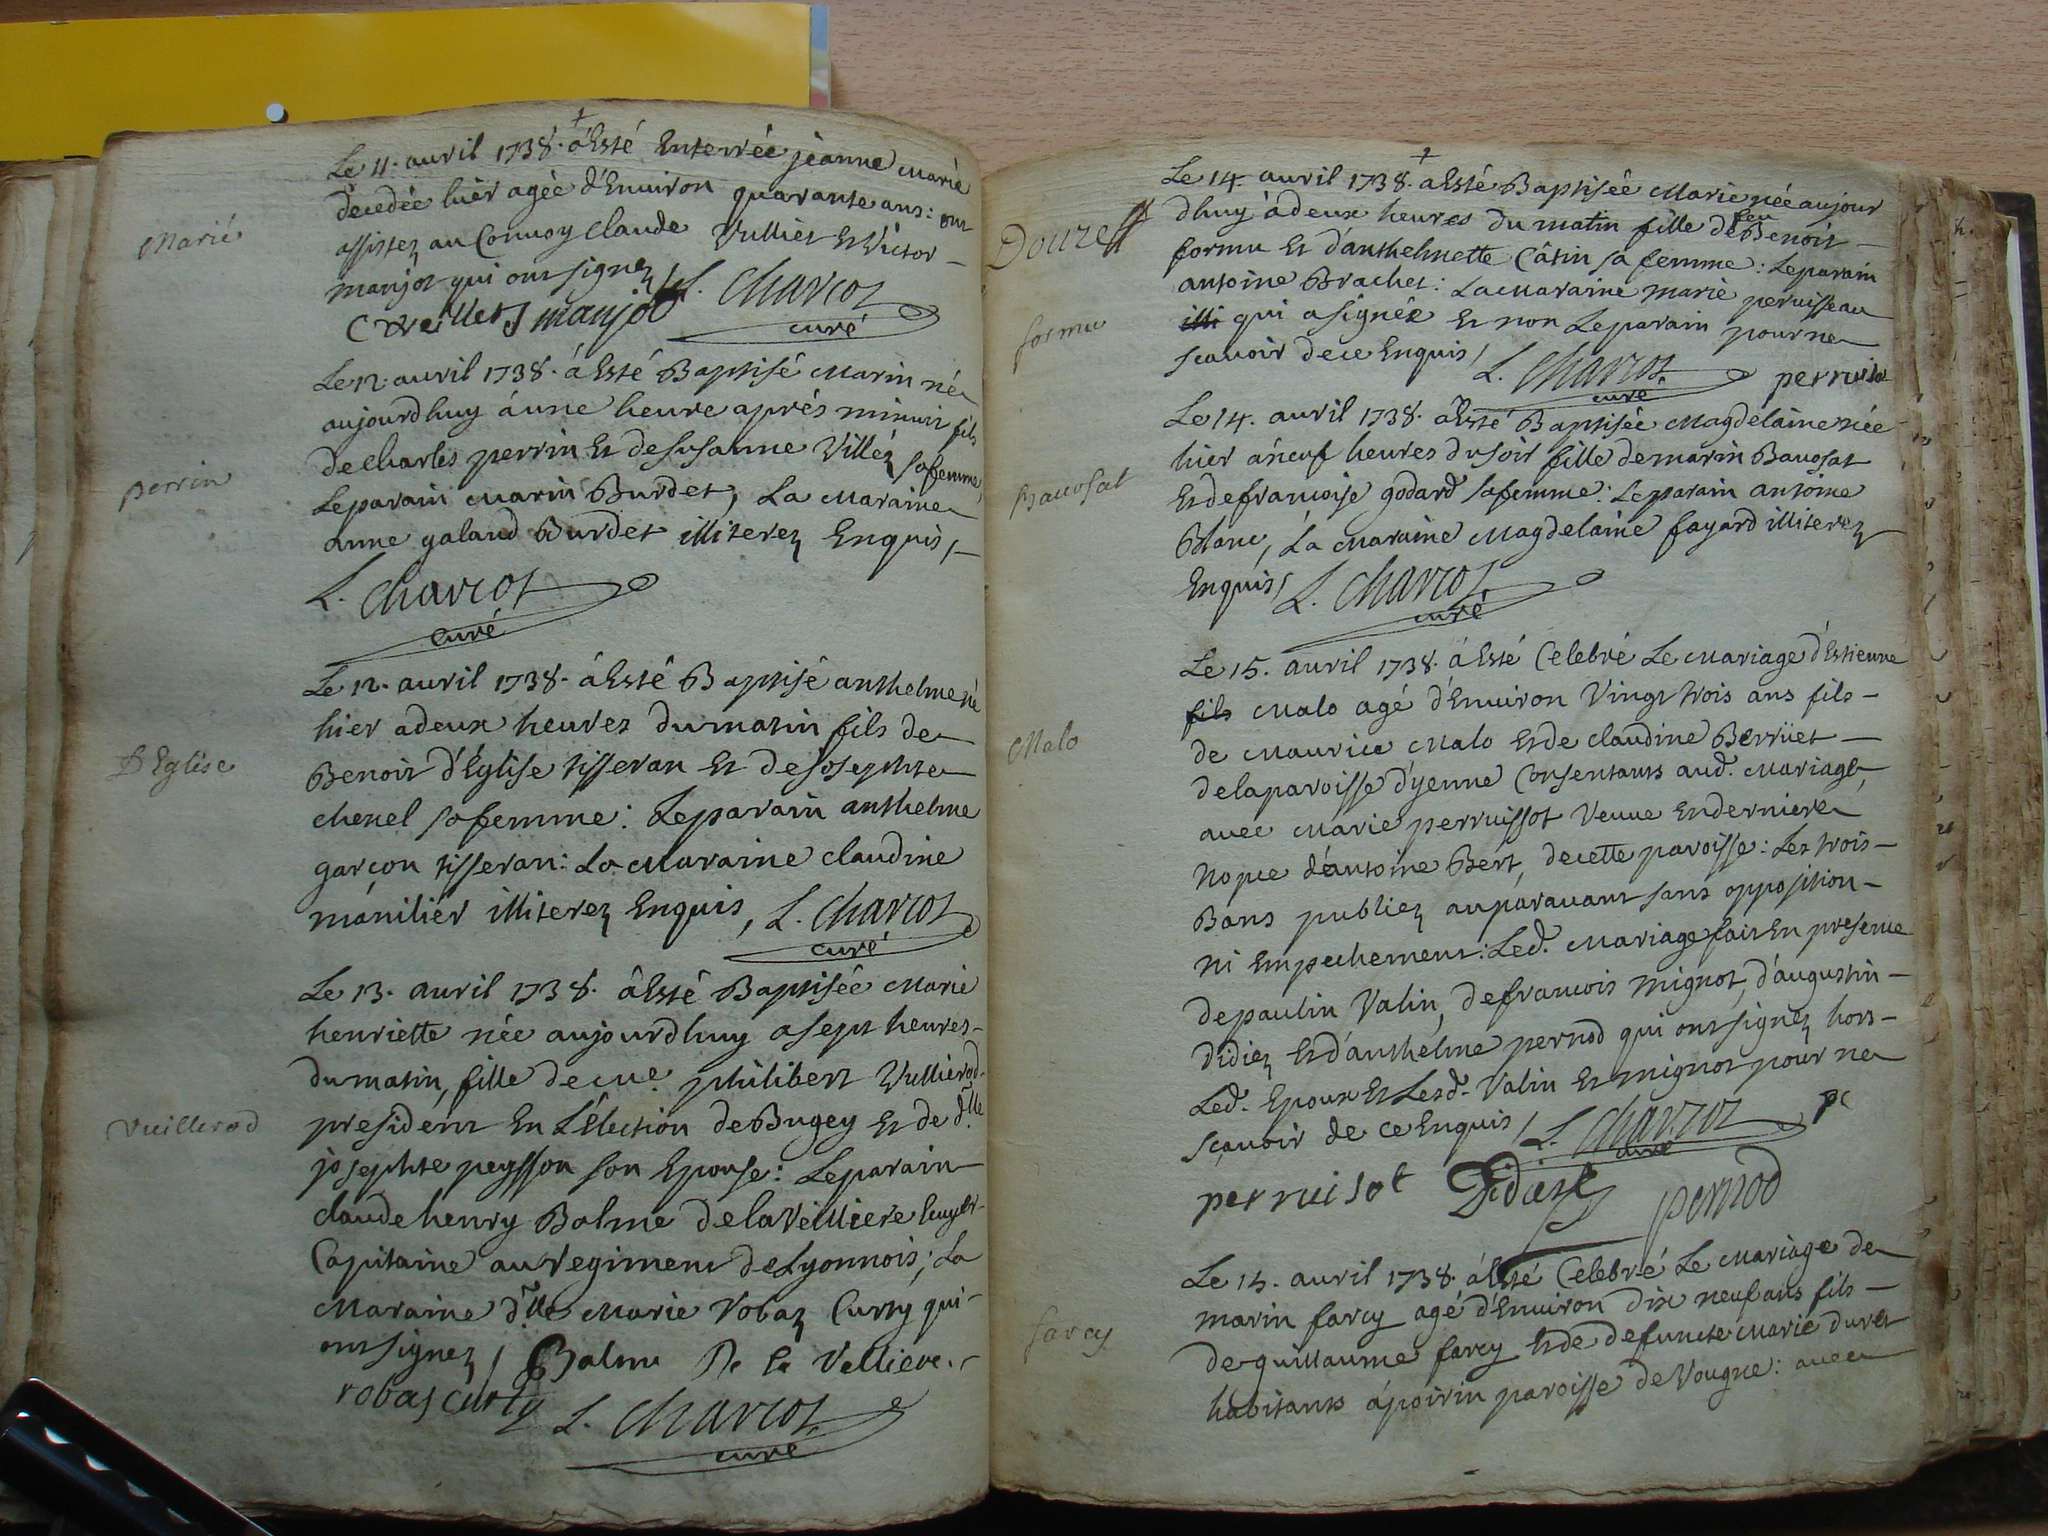 Marié
Le 11. auril 1738. á Esté Enterrée jeanne Marie
decedée hier agée d'Enuiron quarante ans: ont
assistez au Conuoy claude Vulliet Et Victor
manjot qui ont signez / L. Charcot
C Vveillet manjot
curé
perrin
Le 12. auril 1738. á Esté Baptisé Marin né
aujourdhuy á une heure aprés minuit fils
de charles perrin Et de susanne Villéz sa femme,
Le parain Marin Burdet, La Maraine
anne galand Burdet illiterez Enquis /
L. Charcot
curé
Le 12. auril 1738. á Esté Baptisé anthelme né
hier a deux heures du matin fils de
D'Eglise
Benoit d'Eglise tisseran Et de josephte
chenel sa femme: Le parain anthelme
garçon tisseran: La Maraine claudine
mánilier illiterez Enquis, L. Charcot
curé
Le 13. auril 1738. á Esté Baptisée Marie
henriette née aujourdhuy a sept heures
du matin, fille de me. philibert Vullierod
Vuillerod
president En L'Election de Bugey Et de dlle
josephte peysson son Epouse: Le parain
claude henry Balme de la Velliere Ecuyer
Capitaine au regiment de Lyonnois; La
Maraine dlle Marie robaz Curty qui
ont signez / Balme De la Velliere
robas curty L. Charcot
curé
Douze
Le 14. auril 1738. a Esté Baptisée Marie née aujour
dhuy á deux heures du matin fille de feu Benoit
formu Et d'anthelmette Câtin sa femme: Le parain
antoine Brachet: La Maraine marie peruisseau
formu
illi qui a signée Et non Le parain pour ne
scauoir de ce Enquis / L. Charcot perruiso
curé
Le 14. auril 1738. á Esté Baptisée Magdelaine née
hier á neuf heures du soir fille de marin Bauosat
Bauosat
Et de francoise godard sa femme: Le parain antoine
Blanc, La Maraine Magdelaine fayard illiterez
Enquis / L. Charcot
curé
Le 15. auril 1738. á Esté Celebré Le Mariage d'Estienne
fils Malo agé d'Enuiron Vingt trois ans fils
Malo
de Maurice Malo Et de claudine Berruet
de la paroisse d'yenne Consentants aud. Mariage,
auec Marie perruissot Veuue En derniere
Nopce d'antoine Bert, de cette paroisse: Les trois
Bans publiez auparauant sans opposition
ni Empechement: Led. Mariage fait En presence
de paulin Valin, de francois mignot, d'augustin
didiez Et d'anthelme pernod qui ont signez hors
Led. Epoux Et Lesd. Valin Et mignot pour ne
scauoir de ce Enquis / L. Charcot
curé
perruisot Didier pernod
Le 15. auril 1738. á Esté Celebré Le Mariage de
marin farcy agé d'Enuiron dix neuf ans fils
farcy
de guillaume farcy Et de defuncte Marie duret
habitants á poirin paroisse de Vougne: auec